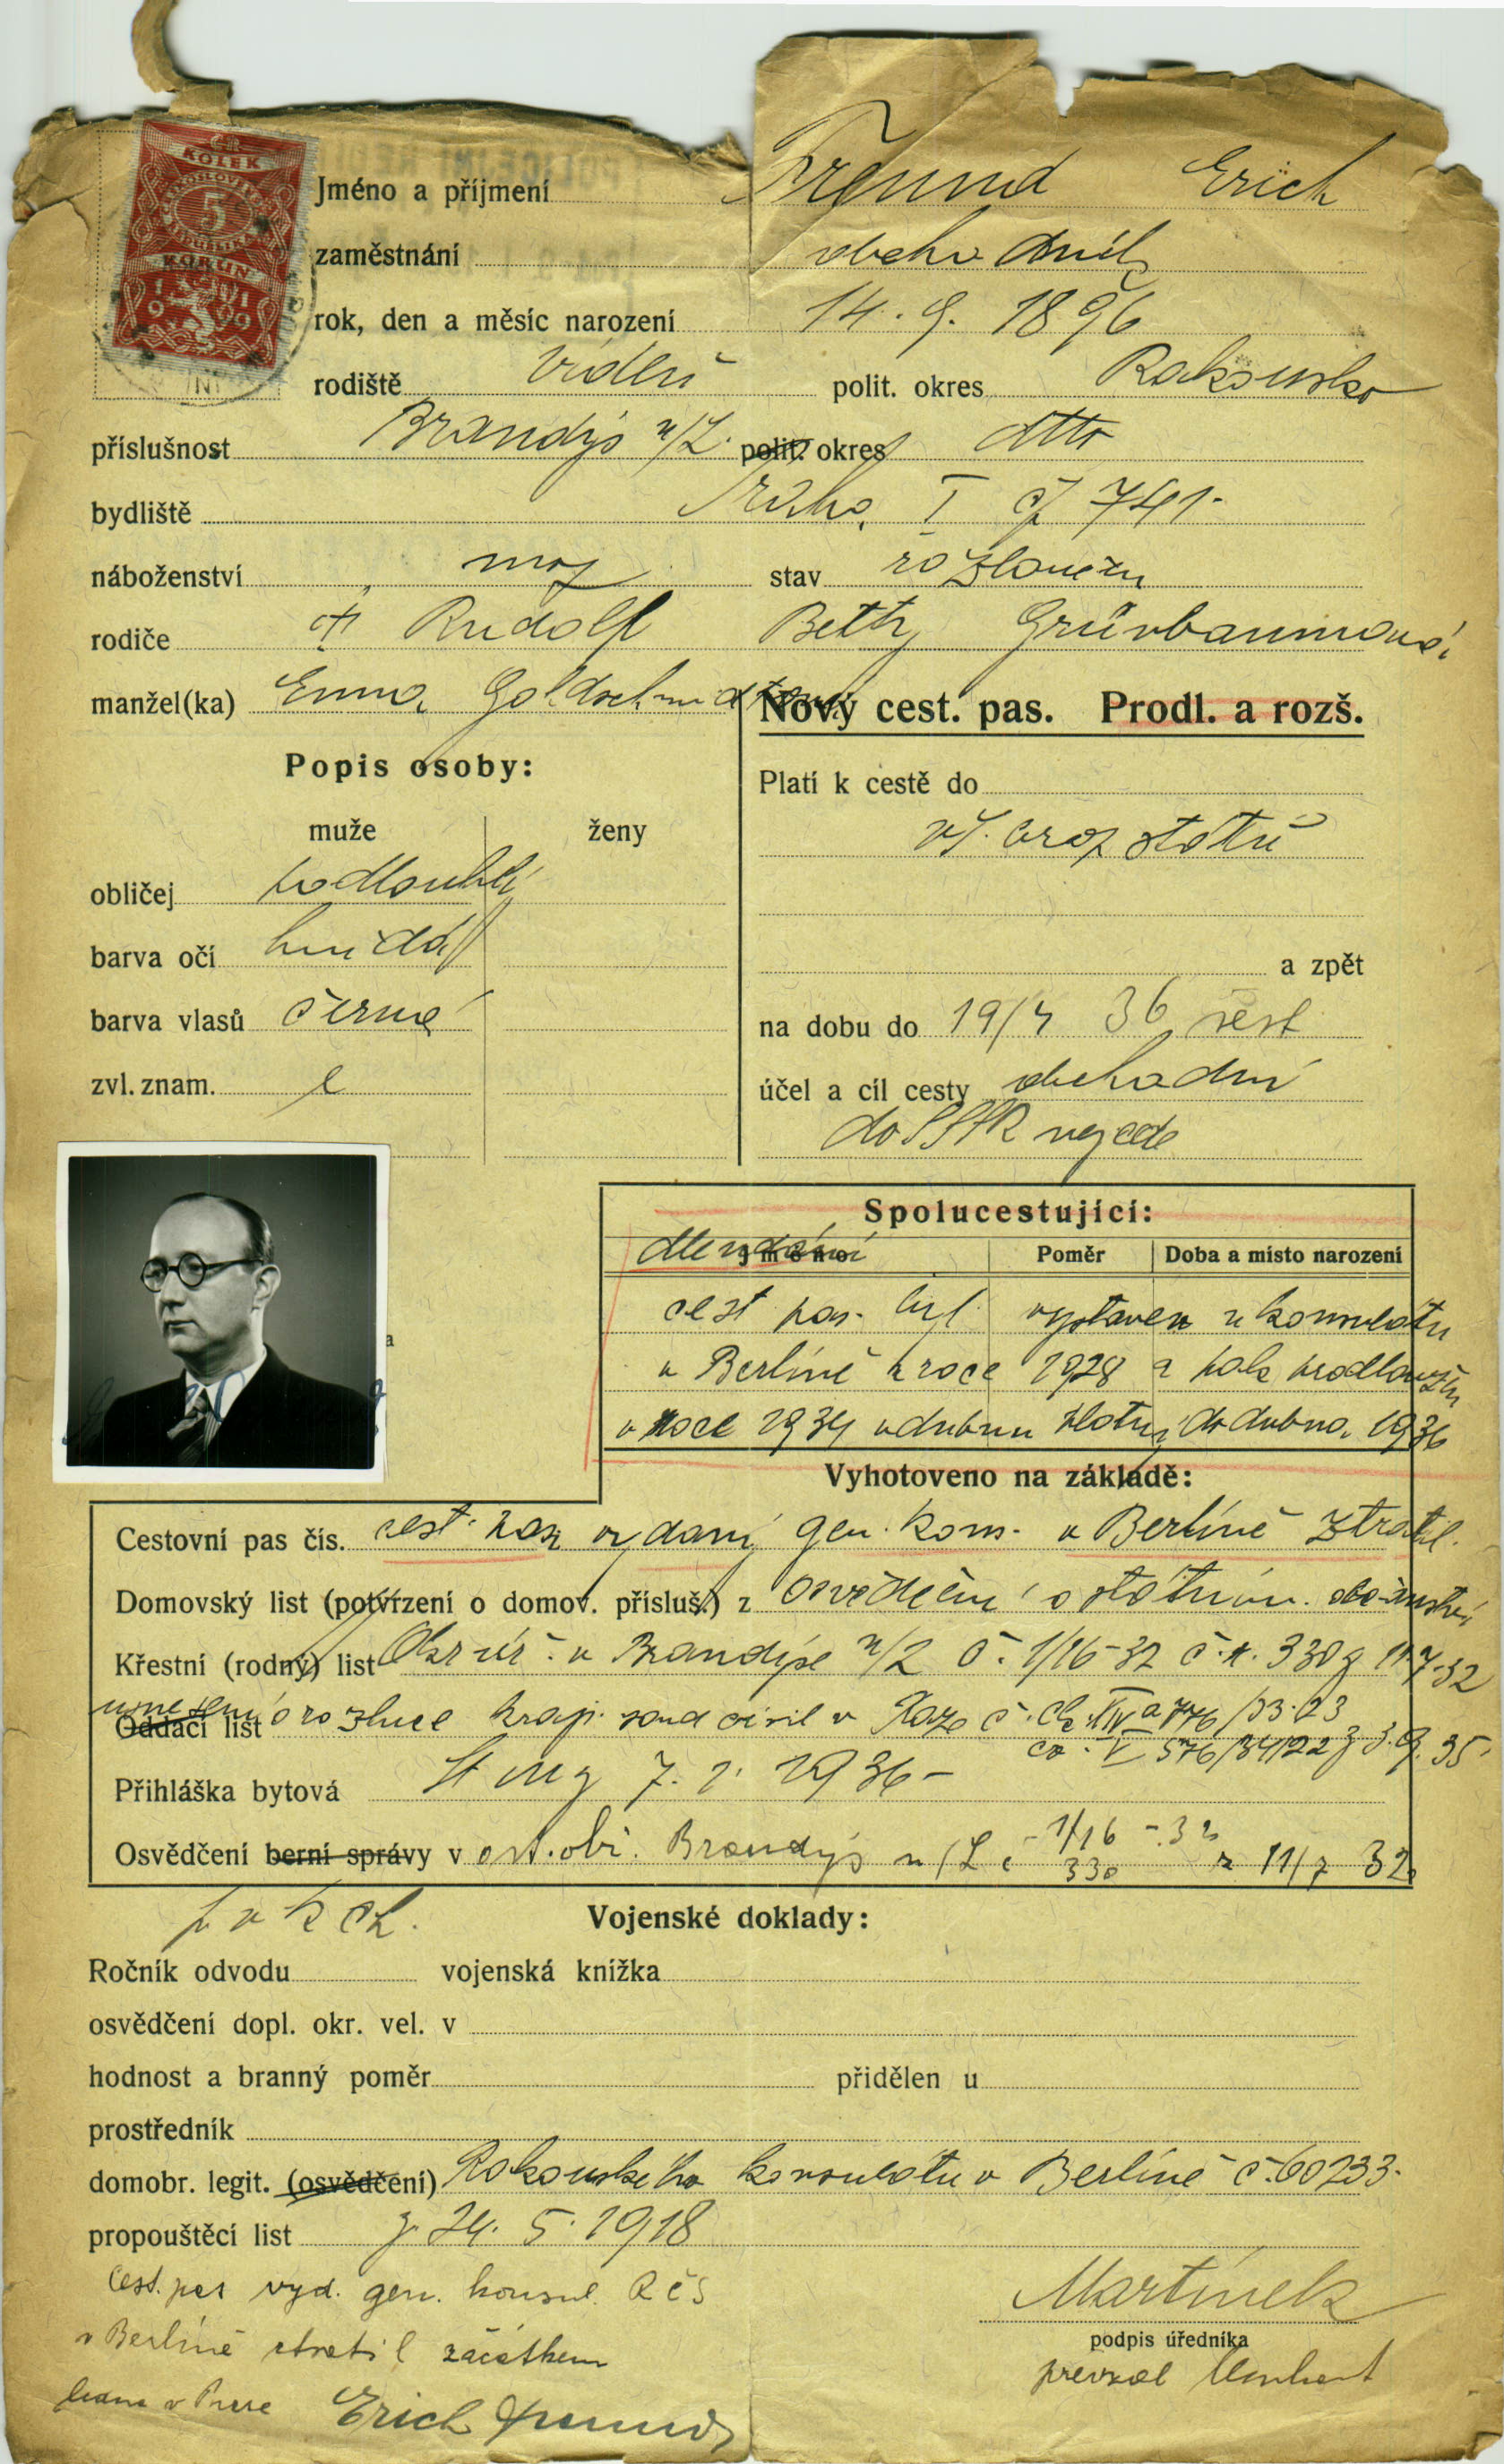 Č.R. KOLEK
ČESKOSLOVENSKÁ REPUBLIKA
5
KORUN
1919
5
Jméno a příjmení Freund Erich
zaměstnání obchodník
rok, den a měsíc narození 14. 9. 1896
rodiště Vídeň polit. okres Rakousko
příslušnost Brandýs n/L. polit. okres dtto
bydliště Praha I čp 741
náboženství moj stav rozloučen
rodiče Rudolf Betty Grünbaumová
manžel(ka) Goldschmidtová
Nový cest. pas. Prodl. a rozš.
Popis osoby:
muže ženy
obličej podlouhlý
barva očí hnědá
barva vlasů černé
zvl. znam.
Platí k cestě do
vš. evrop. států
a zpět
na dobu do 19/4 36
účel a cíl cesty obchodní
do SSSR nejede
Spolucestující:
Jméno Poměr Doba a místo narození
cest. pas. byl vystaven u konsulátu
v Berlíně v roce 1928 a pak prodloužen
v roce 1934 v dubnu do dubna 1936
Vyhotoveno na základě:
Cestovní pas čís. cest. pas vydaný gen. kons. v Berlíně ztratil.
Domovský list (potvrzení o domov. přísluš.) z osvědčení o státním občanství
Křestní (rodný) list Okr. úř. v Brandýse n/L č. 1/16-32 č.j. 330 z 11.7.32
Oddací list usnesení o rozluce kraj. soud civil v Praze č. Ck XIV a 776/33-23
V 576/34/22 z 3.9.35
Přihláška bytová 7. 1. 1936
Osvědčení berní správy v ost. obč. Brandýs n/L č 1/16-32 330 z 11/7 32
Vojenské doklady:
Ročník odvodu vojenská knížka
osvědčení dopl. okr. vel. v
hodnost a branný poměr přidělen u
prostředník
domobr. legit. (osvědčení) Rakouského konsulátu v Berlíně č. 60233.
propouštěcí list z 24. 5. 1918
Cest. pas vyd. gen. konsul. RČS
v Berlíně ztratil začátkem
v Praze Erich Freund
Martínek
podpis úředníka
převzal